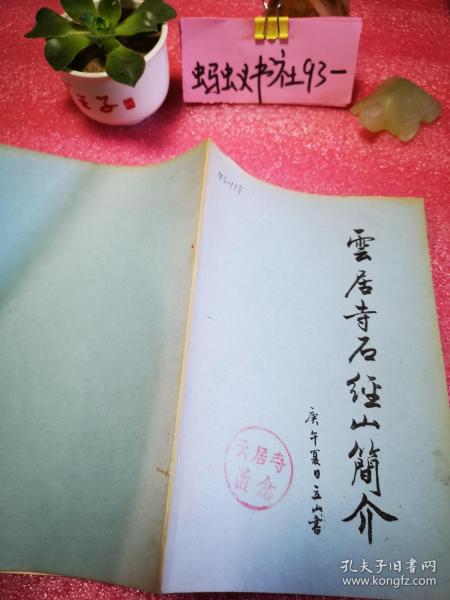 蚂蚁书社93-
93-118
雲居寺石經山簡介
庚午夏日立山書
云居寺
留念
孔夫子旧书网
www.kongfz.com